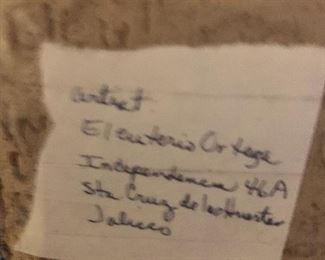 artist
Eleuterio Ortega
Independencia 46A
Sta Cruz de las Huertas
Jalisco